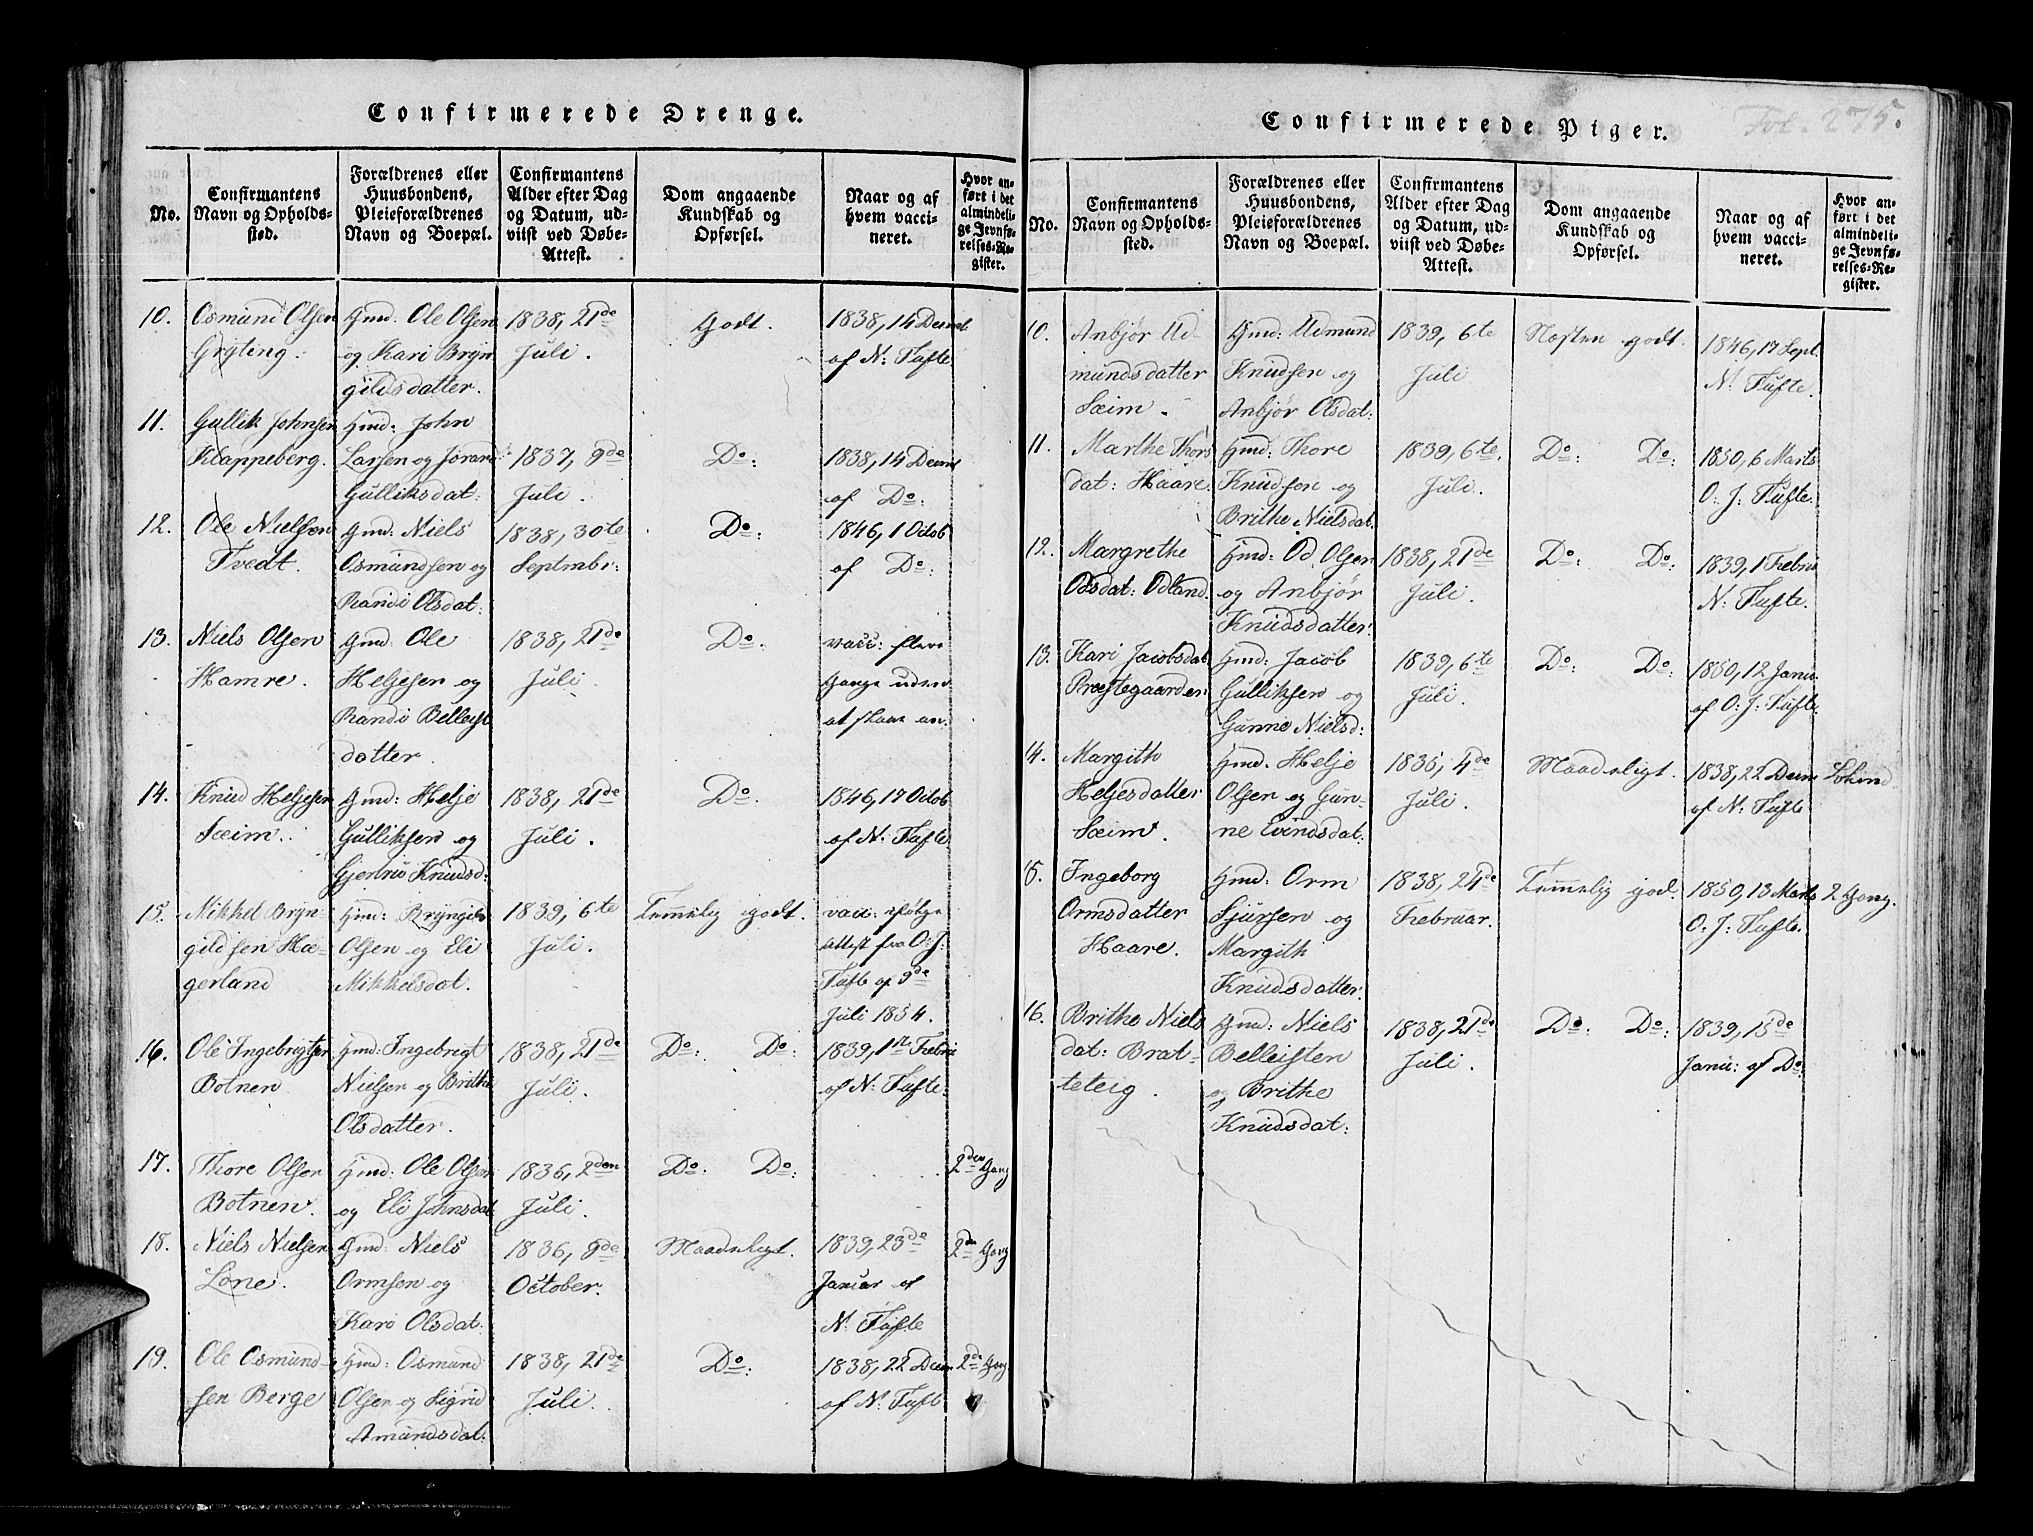 Confirmerede Drenge.
No.
Confirmantens
Navn og Opholds-
sted.
Forældrenes eller
Huusbondens,
Pleieforældrenes
Navn og Boepæl.
Confirmantens
Alder efter Dag
og Datum, ud-
viist ved Døbe-
Attest.
Dom angaaende
Kundskab og
Opførsel.
Naar og af
hvem vacci-
neret.
Hvor an-
ført i det
almindeli-
ge Jevnfø-
relses-Re-
gister.
10.
Osmund Olsen
Gryting.
Gmd: Ole Olsen
og Kari Bryn
gildsdatter.
1838, 21de
Juli.
Godt.
1838, 14 Decmb
af N: Tufte
11.
Gullik Johnsen
Klappeberg.
Gmd: John
Larsen og Jorand
Gulliksdat:
1837, 9de
Juli.
Do:
1838, 14 Decmb
af Do:
12.
Ole Nielsen
Tvedt.
Gmd: Niels
Osmundsen og
Randi Olsdat:
1838, 30te
Septmbr:
Do:
1846, 1 Octob
af Do:
13.
Niels Olsen
Hamre.
Gmd: Ole
Heljesen og
Randi Belleist
datter.
1838, 21de
Juli.
Do:
vacc: flere
Gange uden
at slaae an.
14.
Knud Heljesen
Sæim.
Gmd: Helje
Gulliksen og
Gjertrü Knudsd:
1838, 21de
Juli.
Do:
1846, 17 Octob
af N: Tufte.
15.
Mikkel Bryn-
gildsen Hæ-
gerland
Gmd: Bryngild
Olsen og Eli
Mikkelsdat.
1839, 6te
Juli.
Temmelig godt.
vacc: ifølge
Attest fra O: J:
Tufte af 9de
Juli 1854.
16.
Ole Ingebrigtsen
Botnen.
Gmd: Ingebrigt
Nielsen og Brithe
Olsdatter.
1838, 21de
Juli.
Do: Do:
1839, 1ste Febru
af N: Tufte.
17.
Thore Olsen
Botnen.
Gmd: Ole Olsen
og Eli Johnsdat
1836, 2den
Juli.
Do: Do:
2den Gang
18.
Niels Nielsen
Lone.
Gmd: Niels
Ormsen og
Kari Olsdat.
1836, 9de
October.
Maadeligt.
1839, 23de
Januar af
N: Tufte
2de Gang
19.
Ole Osmund-
sen Berge
Gmd: Osmund
Olsen og Sigrid
Amundsdat:
1838, 21de
Juli.
Do:
1838, 22 Decm
af N: Tuft
2de Gang
Confirmerede Piger.
Fol. 275.
No.
Confirmantens
Navn og Opholds-
sted.
Forældrenes eller
Huusbondens,
Pleieforældrenes
Navn og Boepæl.
Confirmantens
Alder efter Dag
og Datum, ud-
viist ved Døbe-
Attest.
Dom angaaende
Kundskab og
Opførsel.
Naar og af
hvem vacci-
neret.
Hvor an-
ført i det
almindeli-
ge Jevnfø-
relses-Re-
gister.
10.
Anbjør Ud-
mundsdatter
Sæim.
Gmd: Udmund
Knudsen og
Anbjør Olsdat:
1839, 6te
Juli
Næsten godt.
1846, 17 Sept.
N: Tufte.
11.
Marthe Thors
dat: Haare.
Gmd: Thore
Knudsen og
Brithe Nielsdat.
1839, 6te.
Juli.
Do: Do:
1850, 6 Marts
O: J: Tufte.
12.
Margrethe
Odsdat: Odland.
Gmd: Od Olsen
og Anbjør
Knudsdatter.
1838, 21de
Juli.
Do: Do:
1839, 1 Febru
N: Tufte.
13.
Kari Jacobsdat
Præstegaarden
Gmd: Jacob
Gulliksen og
Gunne Nielsd:
1839, 6te
Juli.
Do: Do:
1850, 12 Janu.
af O: J: Tufte.
14.
Margithe
Heljesdatter
Sæim.
Gmd. Helje
Olsen og Gun-
ne Evindsdat:
1835, 4de
Juli.
Maadeligt.
1838, 22 Decm
af N: Tufte
15.
Ingeborg
Ormsdatter
Haare.
Gmd: Orm
Sjursen og
Margith
Knudsdatter.
1838, 24de
Februar.
Temmelig god.
1850, 13 Marts
O. J: Tufte.
2 Gang.
16.
Brithe Niels
dat: Brat-
teteig.
Gmd: Niels
Belleisten
og Brithe
Knudsdat:
1838, 21de
Juli.
Do: Do:
1839, 15de
Janu: af Do: